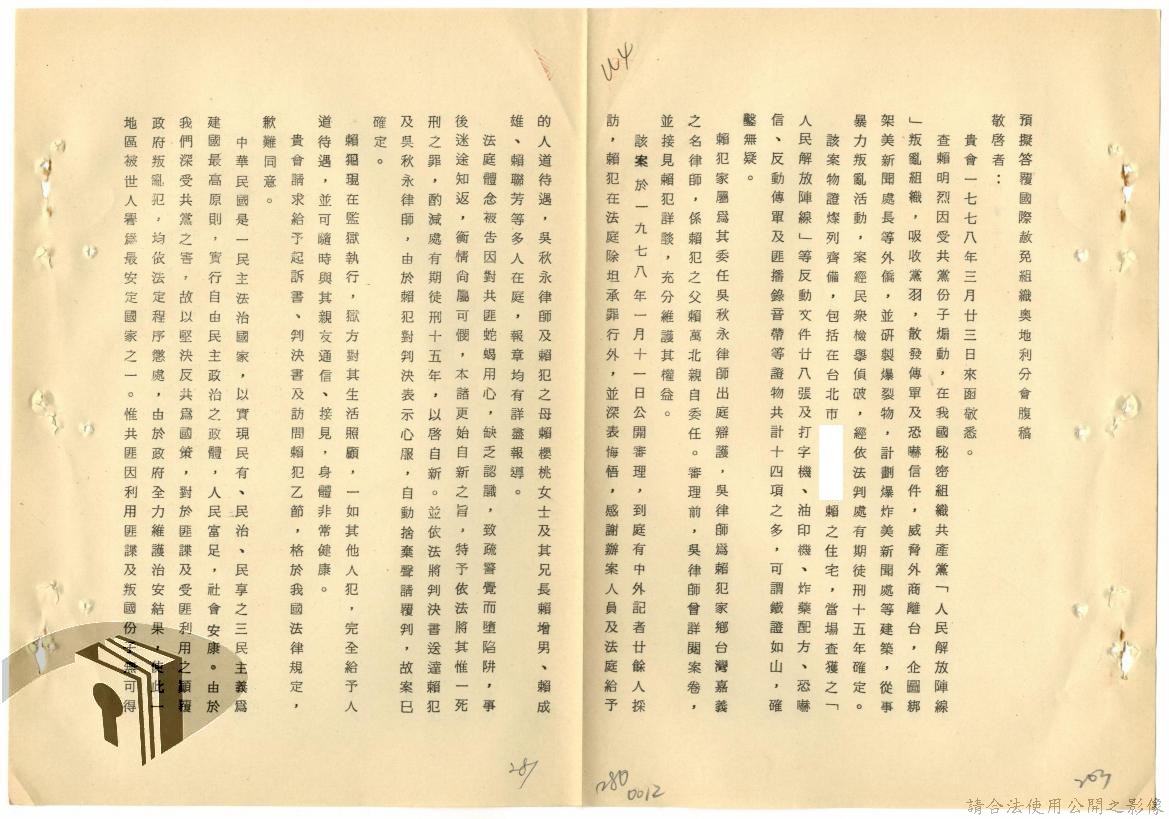 預擬答覆國際赦免組織奧地利分會腹稿
敬啓者：
貴會一七七八年三月廿三日來函敬悉。
查賴明烈因受共黨份子煽動，在我國秘密組織共產黨「人民解放陣線
」叛亂組織，吸收黨羽，散發傳單及恐嚇信件，威脅外商離台，企圖綁
架美新聞處長等外僑，並研製爆裂物，計劃爆炸美新聞處等建築，從事
暴力叛亂活動，案經民衆檢舉偵破，經依法判處有期徒刑十五年確定。
該案物證燦列齊備，包括在台北市
賴之住宅，當場查獲之「
人民解放陣線」等反動文件廿八張及打字機、油印機、炸藥配方、恐嚇
信、反動傳單及匪播錄音帶等證物共計十四項之多，可謂鐵證如山，確
鑿無疑。
賴犯家屬爲其委任吳秋永律師出庭辯護，吳律師爲賴犯家鄉台灣嘉義
之名律師，係賴犯之父賴萬北親自委任。審理前，吳律師曾詳閱案卷，
並接見賴犯詳談，充分維護其權益。
該案於一九七八年一月十一日公開審理，到庭有中外記者廿餘人採
訪，賴犯在法庭除坦承罪行外，並深表悔悟，感謝辦案人員及法庭給予
的人道待遇，吳秋永律師及賴犯之母賴櫻桃女士及其兄長賴增男、賴成
雄、賴聯芳等多人在庭，報章均有詳盡報導。
法庭體念被告因對共匪蛇蝎用心，缺乏認識，致疏警覺而墮陷阱，事
後迷途知返，衡情尚屬可憫，本諸更始自新之旨，特予依法將其惟一死
刑之罪，酌減處有期徒刑十五年，以啓自新。並依法將判決書送達賴犯
及吳秋永律師，由於賴犯對判決表示心服，自動捨棄聲請覆判，故案已
確定。
賴犯現在監獄執行，獄方對其生活照顧，一如其他人犯，完全給予人
道待遇，並可隨時與其親友通信、接見，身體非常健康。
貴會請求給予起訴書、判決書及訪問賴犯乙節，格於我國法律規定，
歉難同意。
中華民國是一民主法治國家，以實現民有、民治、民享之三民主義爲
建國最高原則，實行自由民主政治之政體，人民富足，社會安康。由於
我們深受共黨之害，故以堅決反共爲國策，對於匪諜及受匪利用之顚覆
政府叛亂犯，均依法定程序懲處，由於政府全力維護治安結果，使此一
地區被世人譽爲最安定國家之一。惟共匪因利用匪諜及叛國份子無可得
281
280
0012
請合法使用公開之影像